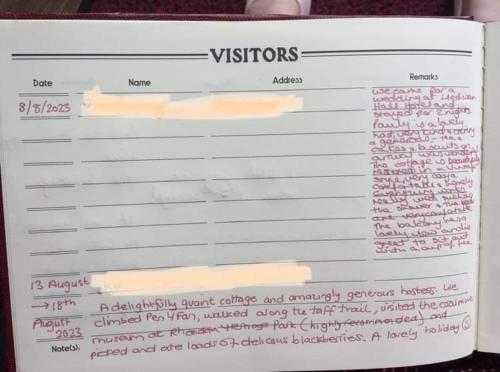 VISITORS
Date Name Address Remarks
8/8/2023
We came for a
wedding at
Hall Hotel and
stayed for 2 nights
is a lovely
host, very kind & caring
& generous - the
cakes & biscuits on
arrival was
The cottage is beautifully
restored in a
style, very cosy &
comfortable & homely
Everything works
really well such as
the shower & the beds
are very comfortable
The balcony has a
lovely view and is
great to sit out
with a cup of tea
13 August
→ 18th
August
2023
Note(s).
A delightfully quaint cottage and amazingly generous hostess. We
climbed Pen Y Fan, walked along the taff trail, visited the coal mine
museum at Rhondda Heritage Park (highly recommended) and
picked and ate loads of delicous blackberries. A lovely holiday